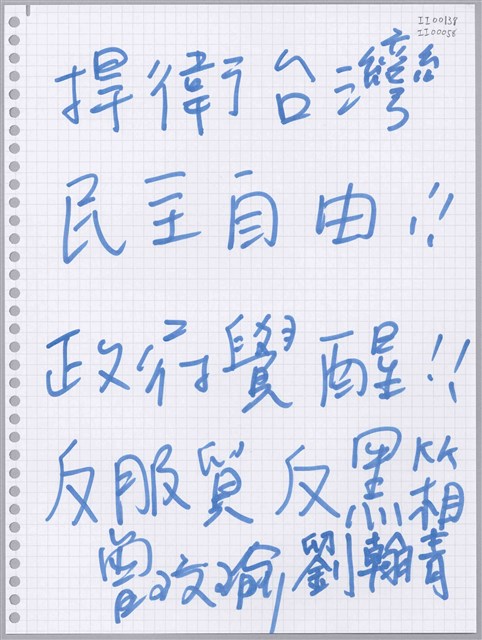 II00138
II00056
捍衛台灣
民主自由!!
政行覺醒!!
反服貿 反黑箱
曾玟瑜 劉翰青